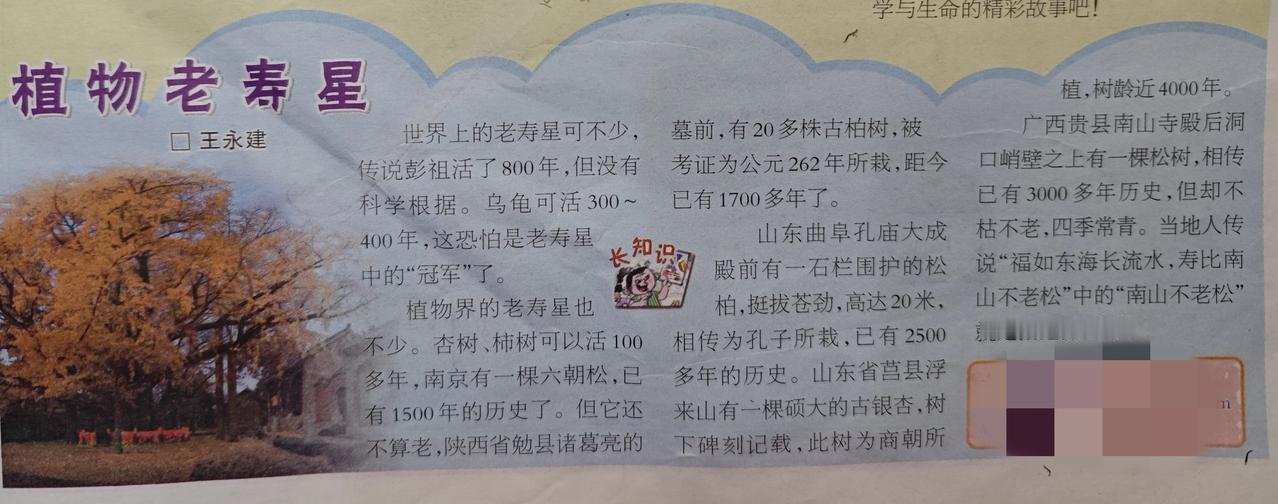 学与生命的精彩故事吧！
植物老寿星
□ 王永建
世界上的老寿星可不少，
传说彭祖活了800年，但没有
科学根据。乌龟可活300～
400年，这恐怕是老寿星
中的“冠军”了。
植物界的老寿星也
不少。杏树、柿树可以活100
多年，南京有一棵六朝松，已
有1500年的历史了。但它还
不算老，陕西省勉县诸葛亮的
长知识
墓前，有20多株古柏树，被
考证为公元262年所栽，距今
已有1700多年了。
山东曲阜孔庙大成
殿前有一石栏围护的松
柏，挺拔苍劲，高达20米，
相传为孔子所栽，已有2500
多年的历史。山东省莒县浮
来山有一棵硕大的古银杏，树
下碑刻记载，此树为商朝所
植，树龄近4000年。
广西贵县南山寺殿后洞
口峭壁之上有一棵松树，相传
已有3000多年历史，但却不
枯不老，四季常青。当地人传
说“福如东海长流水，寿比南
山不老松”中的“南山不老松”
就
m